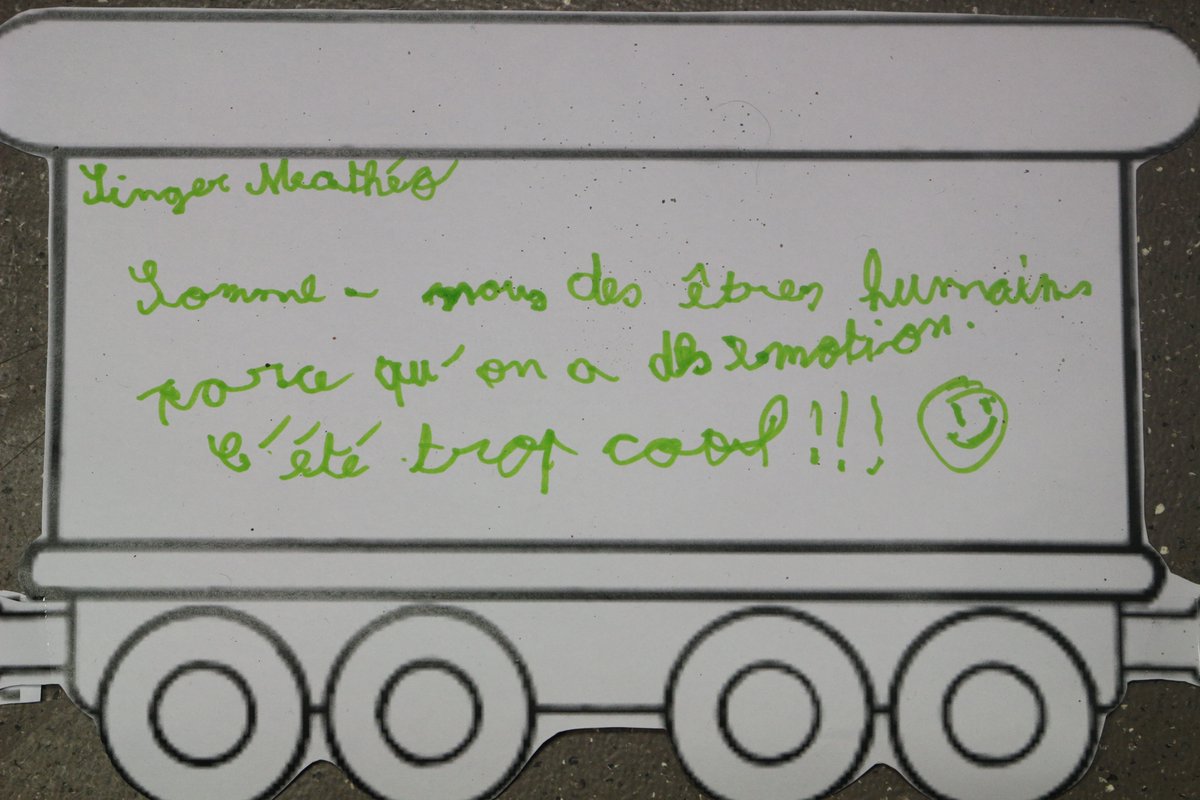 Singer Mathéo
Somme - nous des êtres humains
parce qu'on a des emotion.
C'été trop cool !!!